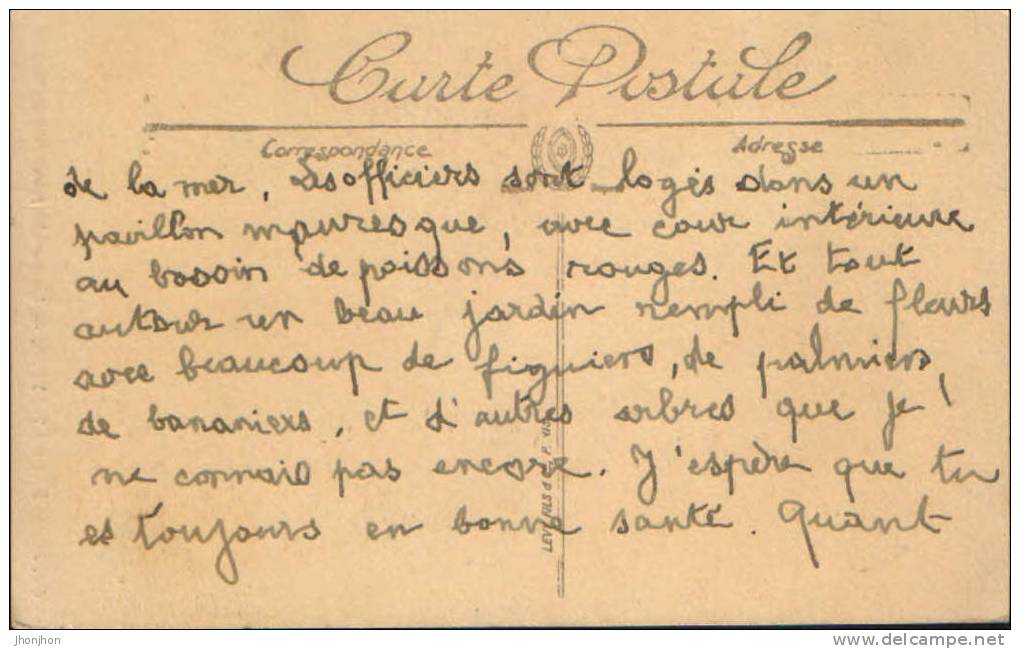 Carte Postale
Correspondance
Adresse
de la mer, Les officiers sont logés dans un
pavillon mauresque, avec cour intérieure
au bassin de poissons rouges. Et tout
autour un beau jardin rempli de fleurs
avec beaucoup de figuiers, de palmiers,
de bananiers, et d'autres arbres que je
ne connais pas encore. J'espère que tu
es toujours en bonne santé. Quant
LEVY FILS
jhonjhon
www.delcampe.net